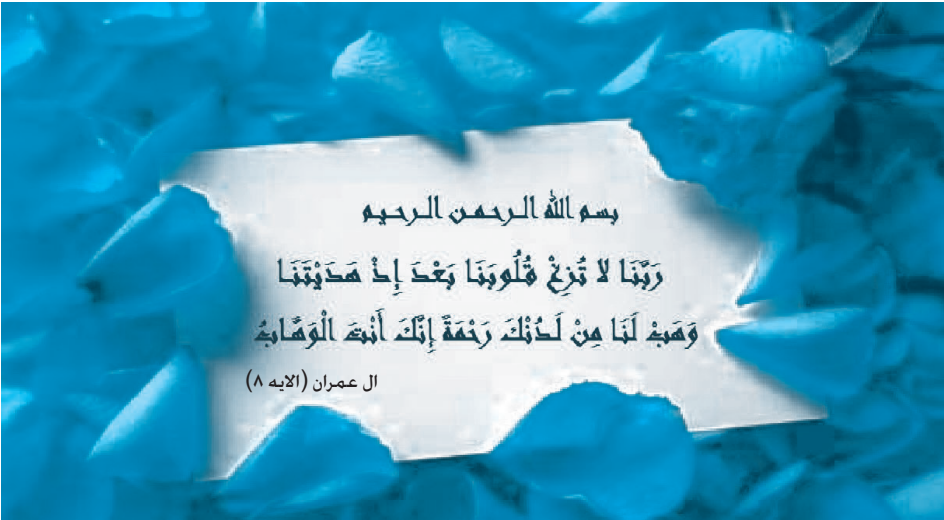 بسم الله الرحمن الرحيم
رَبَّنَا لا تُزِغْ قُلُوبَنَا بَعْدَ إِذْ هَدَيْتَنَا
وَهَبْ لَنَا مِنْ لَدُنْكَ رَحْمَةً إِنَّكَ أَنْتَ الْوَهَّابُ
ال عمران (الايه ٨)